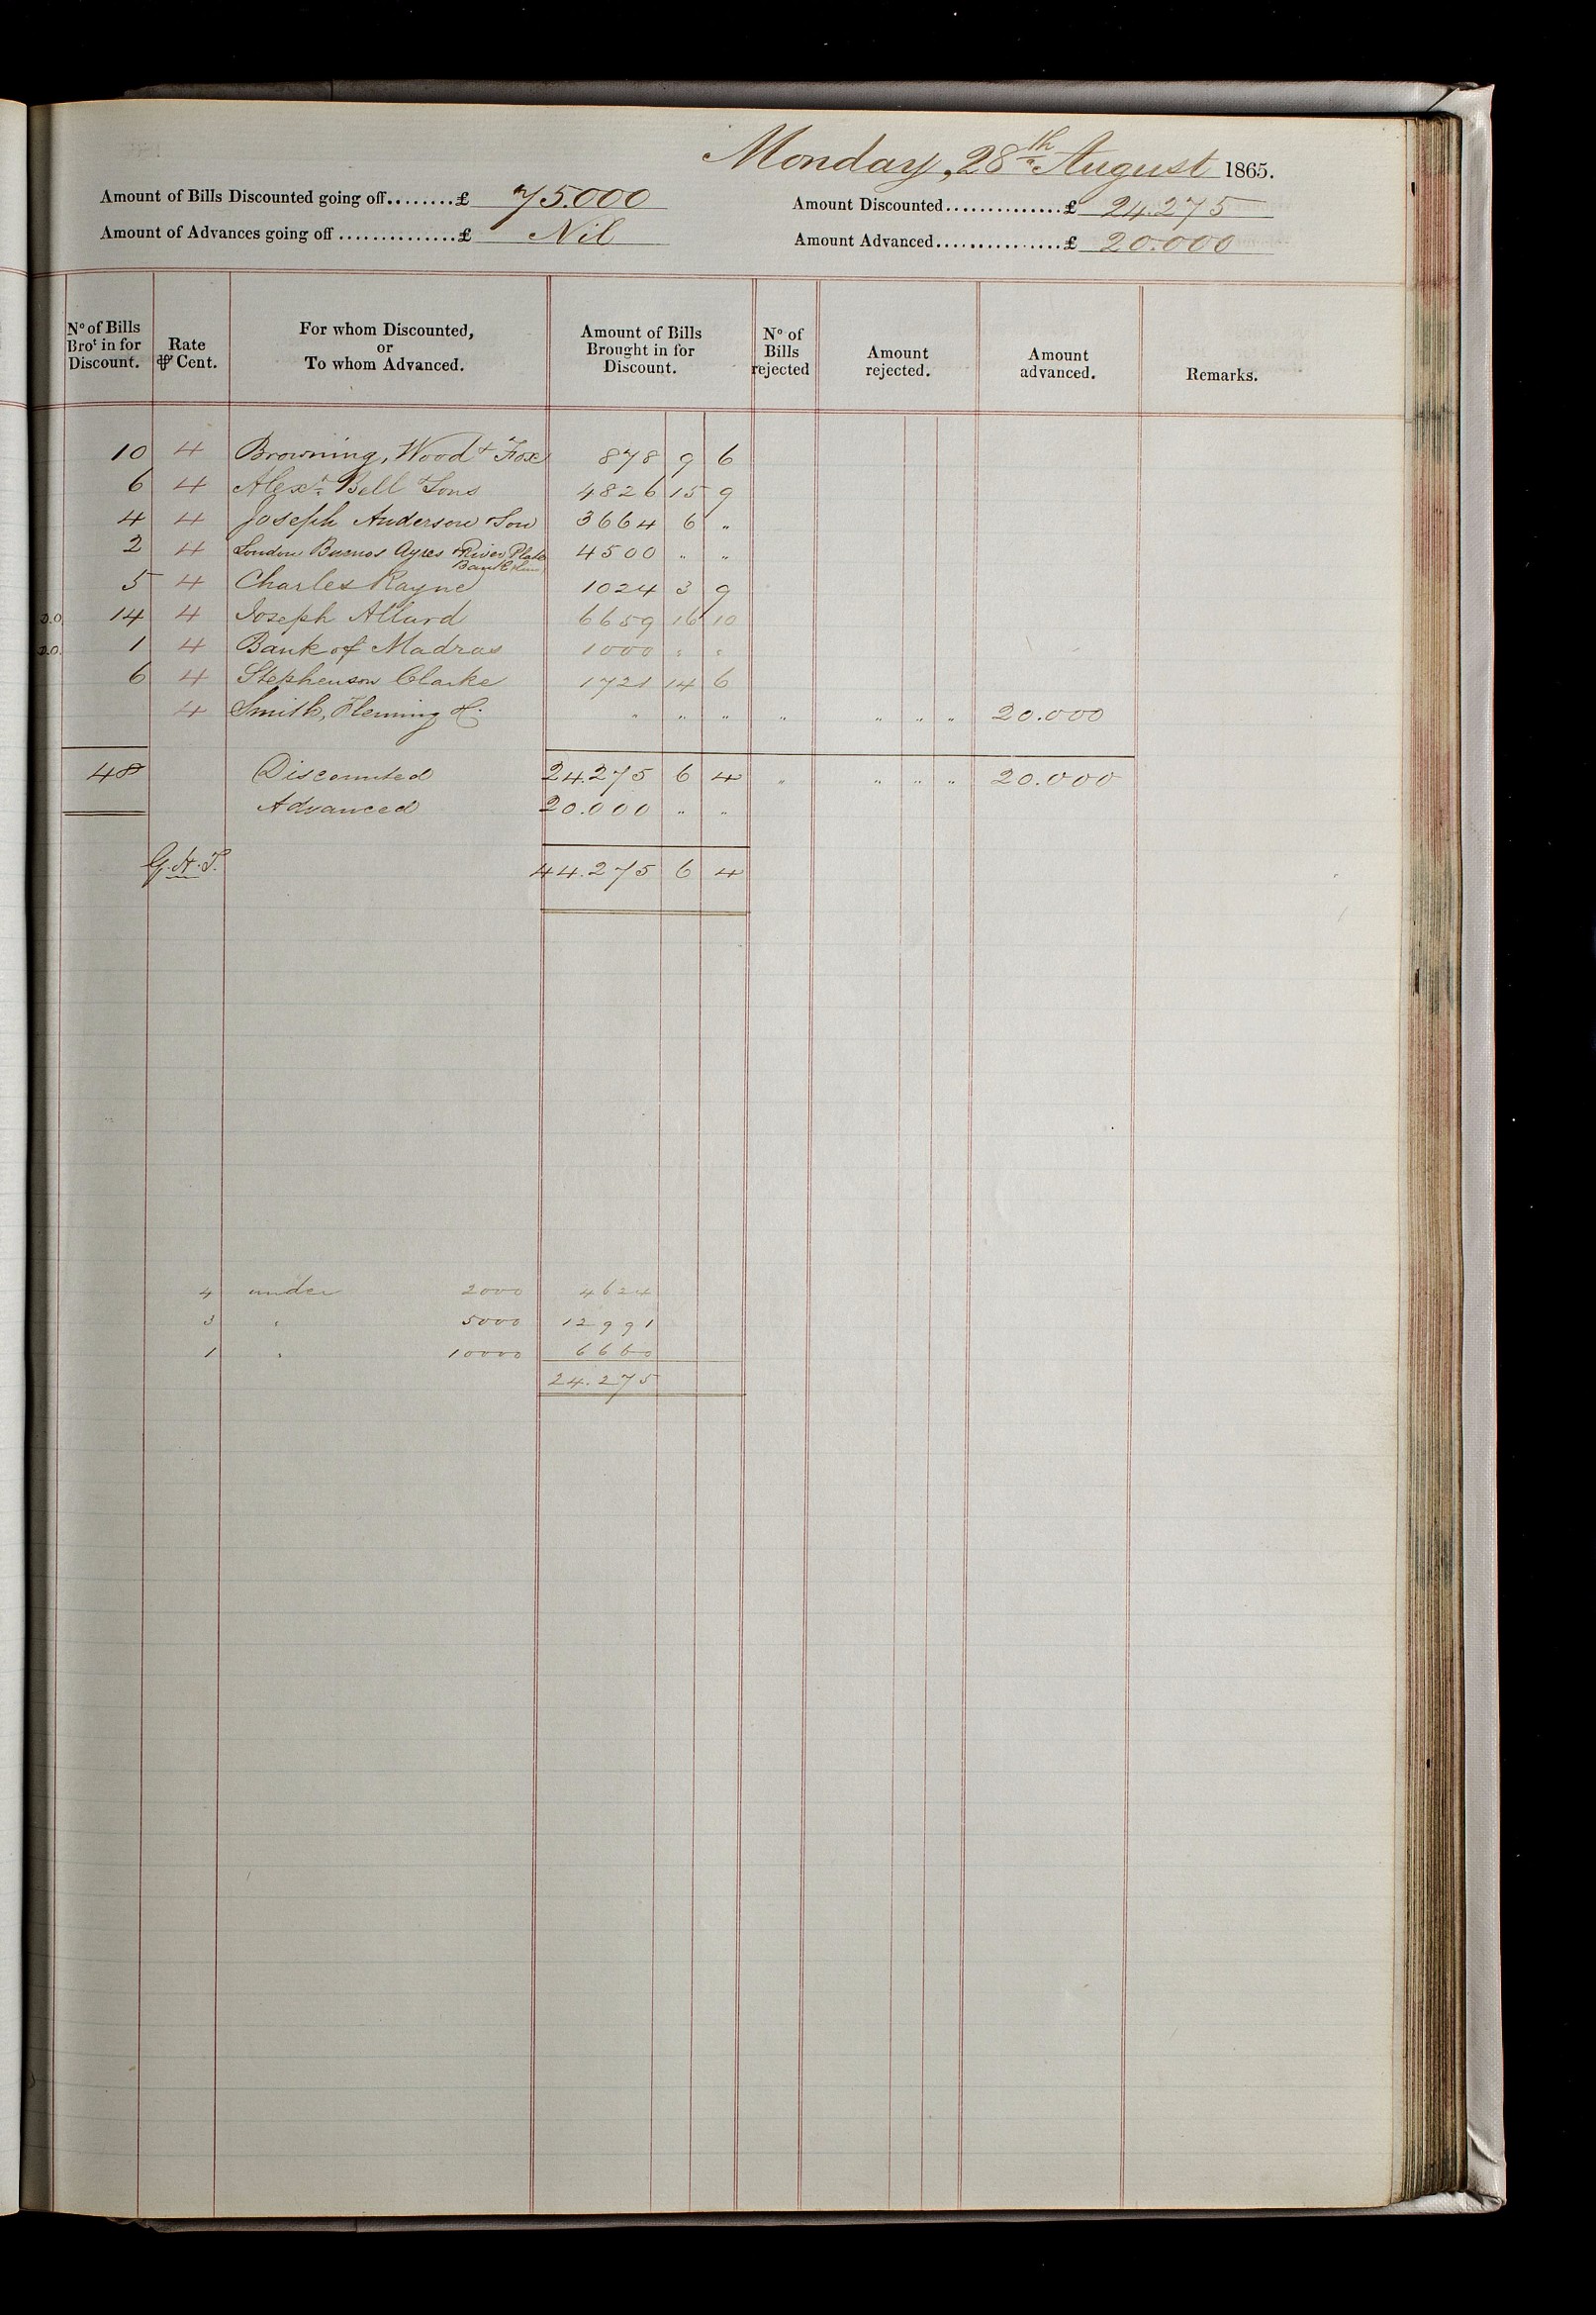 Monday, 28th August 1865.
Amount of Bills Discounted going off........£ 75.000
Amount Discounted..............£ 24.275
Amount of Advances going off..............£ Nil
Amount Advanced...............£ 20.000
No of Bills Brot in for Discount. Rate ⅌ Cent. For whom Discounted, or To whom Advanced. Amount of Bills Brought in for Discount. No of Bills rejected Amount rejected. Amount advanced. Remarks.
10 4 Browning, Wood & Fox 878 9 6
6 4 Alexr Bell & Sons 4826 15 9
4 4 Joseph Anderson & Son 3664 6 "
2 4 London Buenos Ayres & River Plate Bank Lim 4500 " "
5 4 Charles Rayne 1024 3 9
D.O. 14 4 Joseph Allard 6659 16 10
D.O. 1 4 Bank of Madras 1000 " "
6 4 Stephenson Clarke 1721 14 6
4 Smith, Fleming & Co " " " " " " " 20.000
48 Discounted 24.275 6 4 " " " " 20.000
Advanced 20.000 " "
G.H.T. 44.275 6 4
4 under 2000 4624
3 " 5000 12991
1 " 10000 6660
24.275